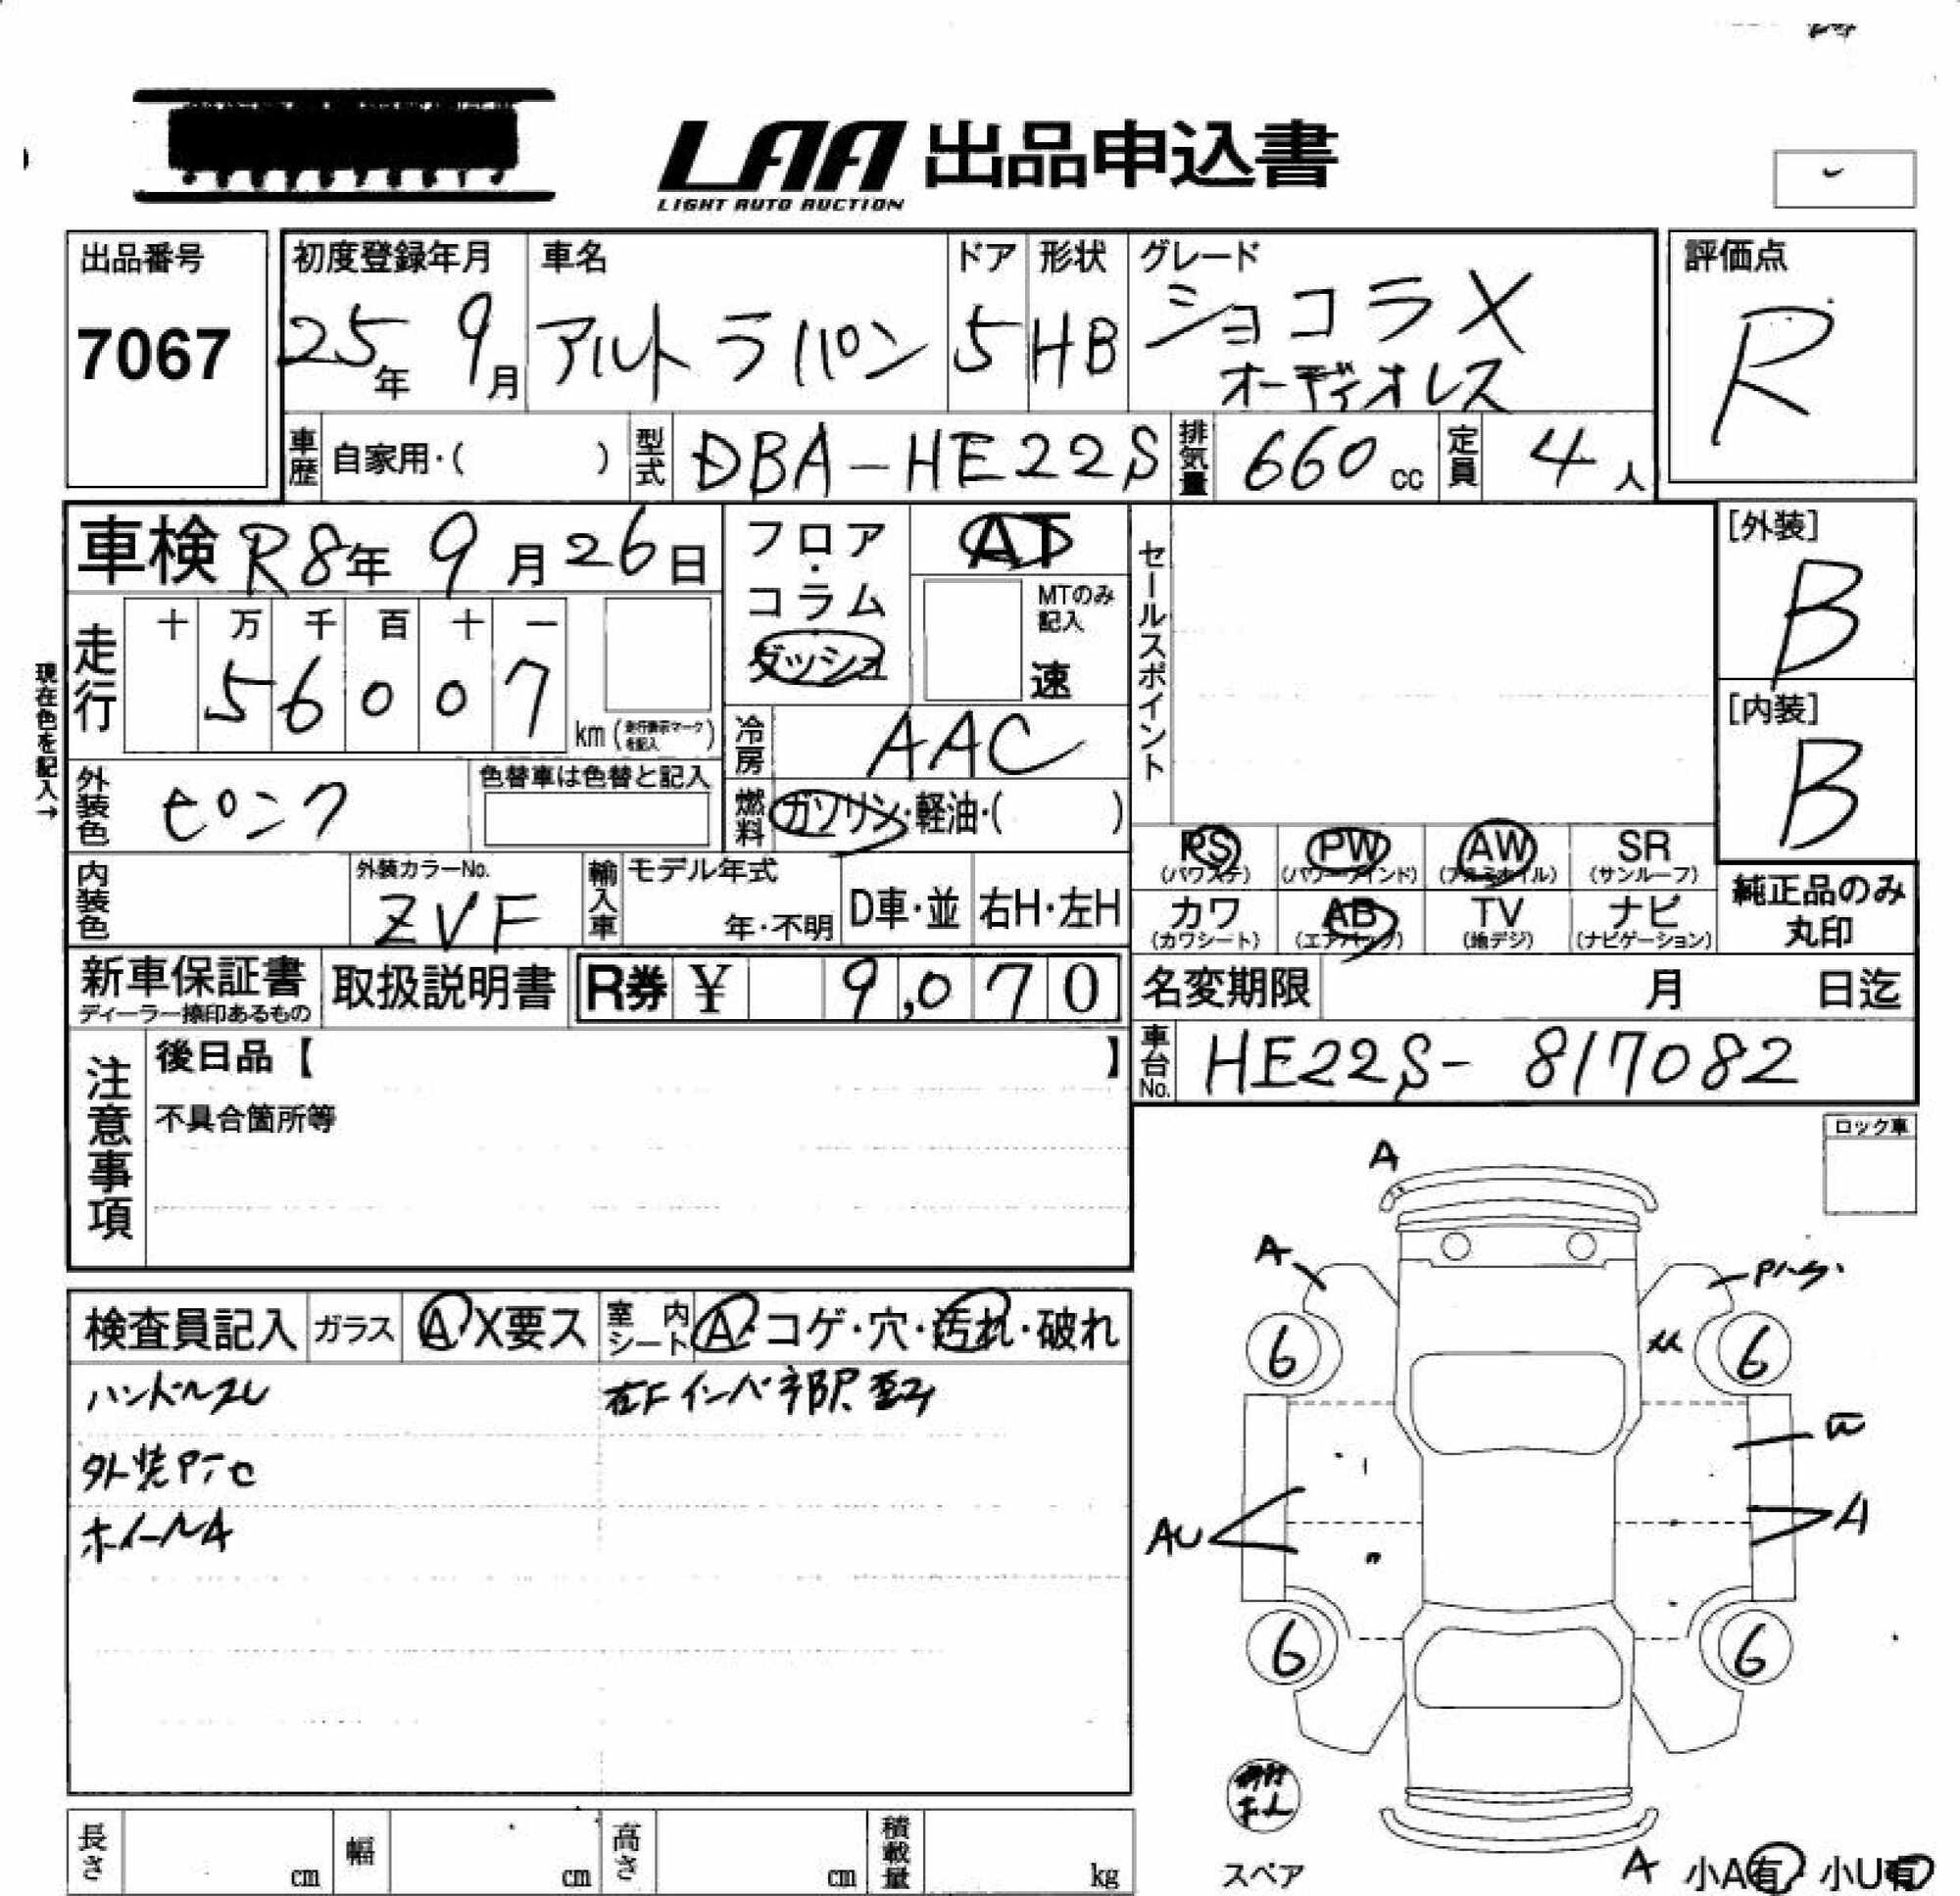 LAA 出品申込書
LIGHT AUTO AUCTION
出品番号
7067
初度登録年月
25年 9月
車名
アルトラパン
ドア
5
形状
HB
グレード
ショコラX
オーディオレス
評価点
R
車歴 自家用・( )
型式 DBA-HE22S
排気量 660 cc
定員 4人
車検 R8年 9月26日
フロア・コラム
ダッシュ
AT
MTのみ記入
速
セールスポイント
[外装]
B
[内装]
B
現在色を記入→
走行
十 万 千 百 十 一
5 6 0 0 7
km (走行表示マークを記入)
冷房 AAC
外装色 ピンク
色替車は色替と記入
燃料 ガソリン・軽油・( )
PS (パワステ)
PW (パワーウインド)
AW (アルミホイル)
SR (サンルーフ)
カワ (カワシート)
AB (エアバック)
TV (地デジ)
ナビ (ナビゲーション)
純正品のみ
丸印
内装色
外装カラーNo.
ZVF
輸入車
モデル年式
年・不明
D車・並
右H・左H
新車保証書
ディーラー捺印あるもの
取扱説明書
R券 ¥ 9,070
名変期限 月 日迄
車台No. HE22S-817082
注意事項
後日品【 】
不具合箇所等
ロック車
検査員記入
ガラス
A X要ス
室内シート
A・コゲ・穴・汚れ・破れ
ハンドルスレ
外装P、C
ホイールA
右Fインパネ部尺歪み
A
A
6
6
AU
A
6
6
スペア
A 小A有 小U有
長さ cm
幅 cm
高さ cm
積載量 kg